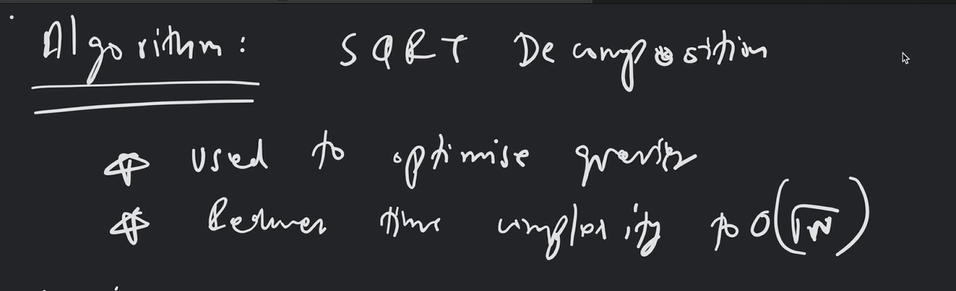 Algorithm: SQRT Decomposition
used to optimise queries
Reduces time complexity to O(√N)